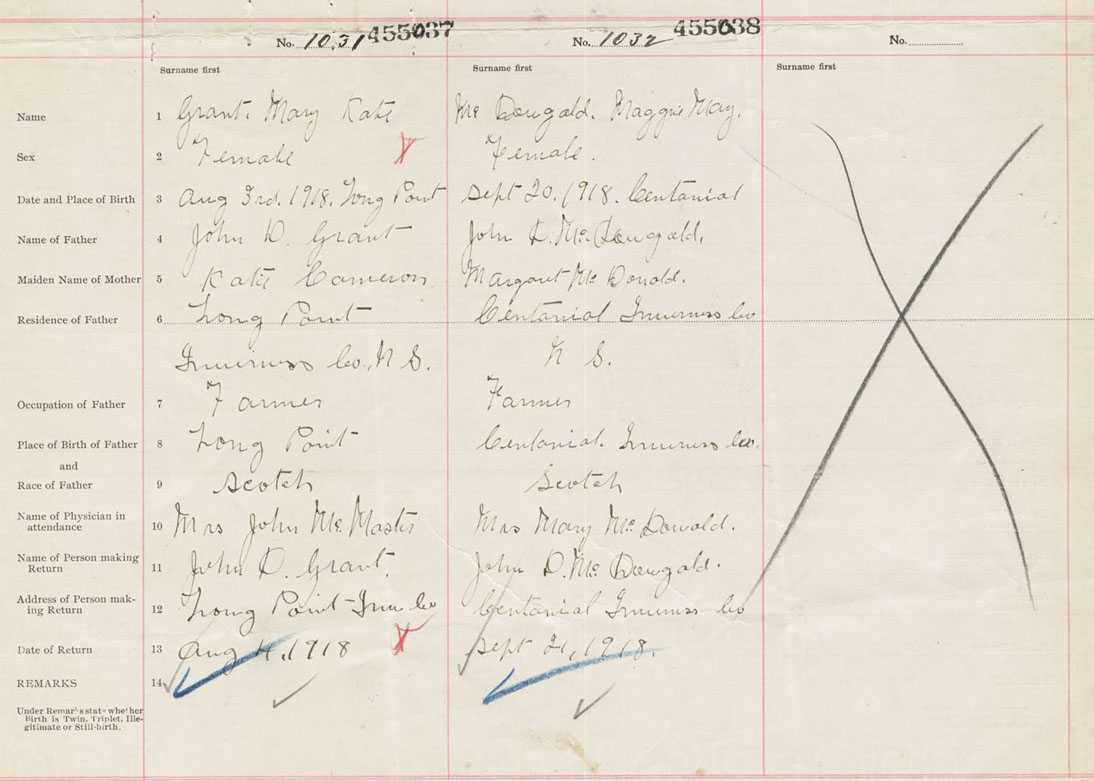 No. 1031 455037 No. 1032 455038 No.
Surname first Surname first Surname first
Name 1 Grant. Mary Kate Mc Dougald. Maggie May.
Sex 2 Female Female.
Date and Place of Birth 3 Aug 3rd. 1918. Long Point Sept 20. 1918. Centanial
Name of Father 4 John D. Grant John D. Mc Dougald.
Maiden Name of Mother 5 Kate Cameron Margaret Mc Donald.
Residence of Father 6 Long Point Centanial Inverness Co
Inverness Co., N S. N S.
Occupation of Father 7 Farmer Farmer
Place of Birth of Father 8 Long Point Centanial. Inverness Co.
and
Race of Father 9 Scotch Scotch
Name of Physician in
attendance 10 Mrs John Mc Master Mrs Mary Mc Donald.
Name of Person making
Return 11 John D. Grant. John D. Mc Dougald.
Address of Person mak-
ing Return 12 Long Point Inv Co Centanial Inverness Co
Date of Return 13 Aug 4, 1918 Sept 21, 1918.
REMARKS 14
Under Remarks state whether
Birth is Twin, Triplet, Ille-
gitimate or Still-birth.